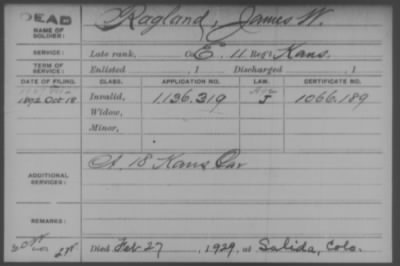 DEAD
NAME OF SOLDIER: Ragland, James W.
SERVICE: Late rank, Co. E. 11 Reg't Kans.
TERM OF SERVICE: Enlisted , 1 Discharged , 1
DATE OF FILING. CLASS. APPLICATION NO. LAW. CERTIFICATE NO.
1892 Oct 18 Invalid, 1.136.319 J 1066.189
Widow,
Minor,
ADDITIONAL SERVICES: A. 18 Kans Cav
REMARKS:
Died Feb 27, 1929, at Salida, Colo.